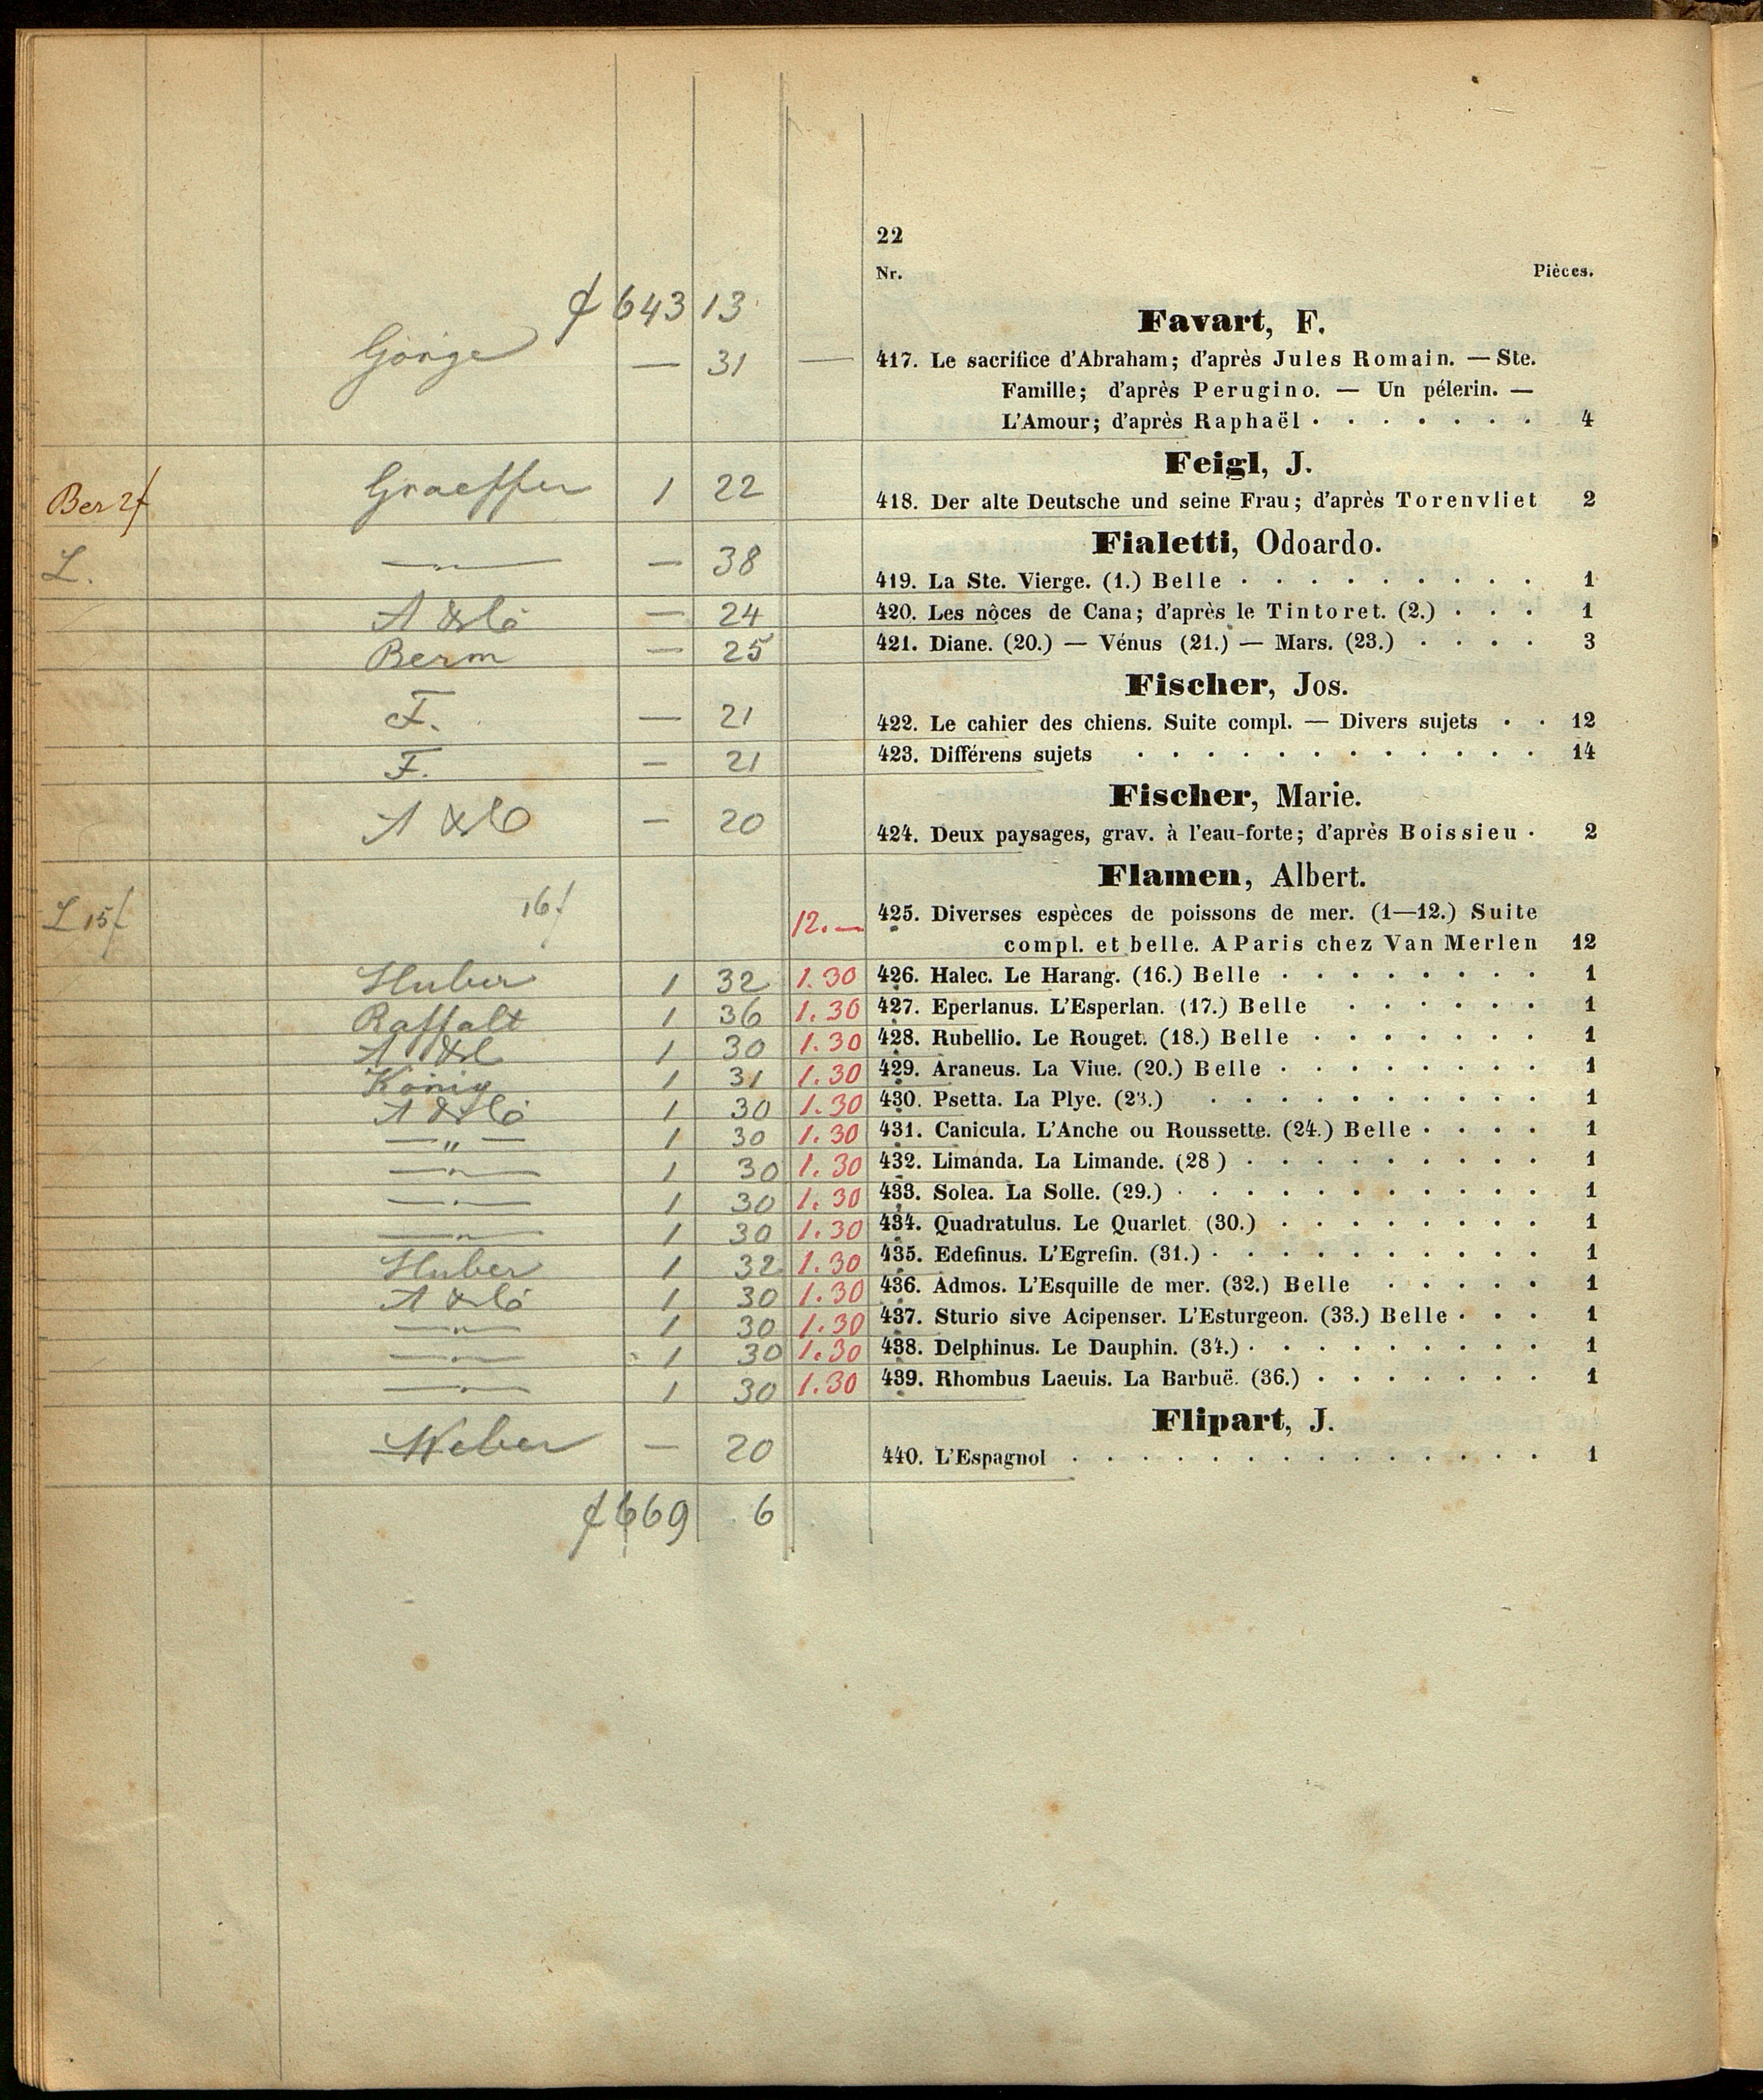 22
Nr. Pièces.
f 643 13
Favart, F.
Görge — 31 — 417. Le sacrifice d'Abraham; d'après Jules Romain. — Ste.
Famille; d'après Perugino. — Un pélerin. —
L'Amour; d'après Raphaël . . . . . . . 4
Feigl, J.
Ber 2f Graeffer 1 22 418. Der alte Deutsche und seine Frau; d'après Torenvliet 2
Fialetti, Odoardo.
L. —„— — 38 419. La Ste. Vierge. (1.) Belle . . . . . . . . . 1
A & Co — 24 420. Les nôces de Cana; d'après le Tintoret. (2.) . . . 1
Berm — 25 421. Diane. (20.) — Vénus (21.) — Mars. (23.) . . . . 3
Fischer, Jos.
F. — 21 422. Le cahier des chiens. Suite compl. — Divers sujets . . 12
F. — 21 423. Différens sujets . . . . . . . . . . . . 14
Fischer, Marie.
A & C — 20 424. Deux paysages, grav. à l'eau-forte; d'après Boissieu . 2
Flamen, Albert.
L 15f 16f 12.— 425. Diverses espèces de poissons de mer. (1—12.) Suite
compl. et belle. A Paris chez Van Merlen 12
Huber 1 32 1.30 426. Halec. Le Harang. (16.) Belle . . . . . . . . 1
Raffalt 1 36 1.30 427. Eperlanus. L'Esperlan. (17.) Belle . . . . . . 1
A & C 1 30 1.30 428. Rubellio. Le Rouget. (18.) Belle . . . . . . . 1
König 1 31 1.30 429. Araneus. La Viue. (20.) Belle . . . . . . . . 1
A & Co 1 30 1.30 430. Psetta. La Plye. (23.) . . . . . . . . . . 1
—„— 1 30 1.30 431. Canicula. L'Anche ou Roussette. (24.) Belle . . . . 1
—„— 1 30 1.30 432. Limanda. La Limande. (28 ) . . . . . . . . . 1
—„— 1 30 1.30 433. Solea. La Solle. (29.) . . . . . . . . . . . 1
—„— 1 30 1.30 434. Quadratulus. Le Quarlet (30.) . . . . . . . . 1
Huber 1 32 1.30 435. Edefinus. L'Egrefin. (31.) . . . . . . . . . . 1
A & Co 1 30 1.30 436. Admos. L'Esquille de mer. (32.) Belle . . . . . 1
—„— 1 30 1.30 437. Sturio sive Acipenser. L'Esturgeon. (33.) Belle . . . 1
—„— 1 30 1.30 438. Delphinus. Le Dauphin. (34.) . . . . . . . . . 1
—„— 1 30 1.30 439. Rhombus Laeuis. La Barbuë. (36.) . . . . . . . 1
Flipart, J.
Weber — 20 440. L'Espagnol . . . . . . . . . . . . . . 1
f 669 6